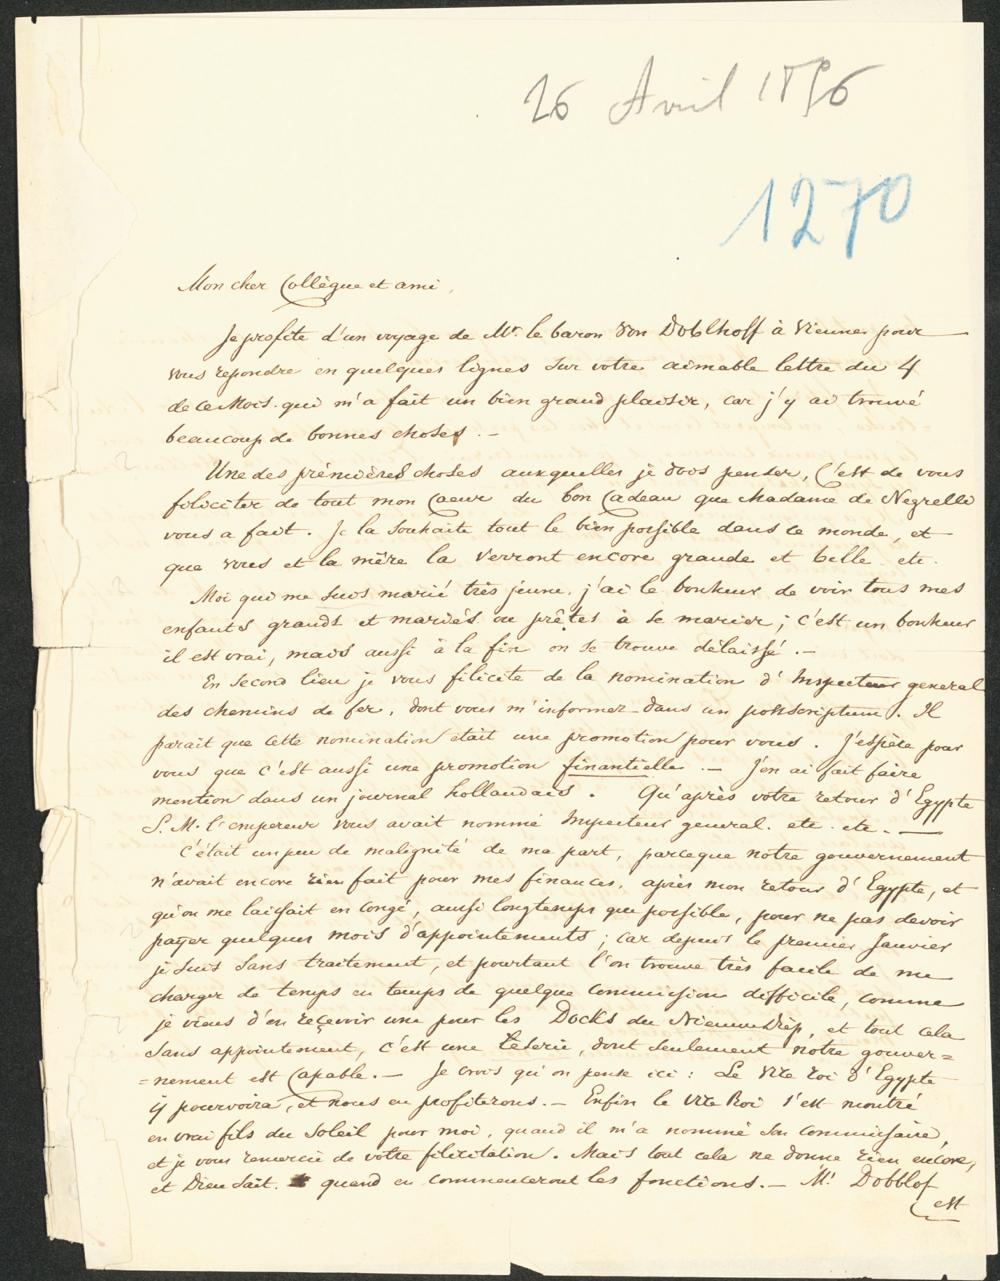 26 Avril 1856
1270
Mon cher Collègue et ami,
Je profite d'un voyage de Mr. le baron von Doblhoff à Vienne, pour
vous repondre en quelques lignes sur votre aimable lettre du 4
de ce Mois. qui m'a fait un bien grand plaisir, car j'y ai trouvé
beaucoup de bonnes choses. —
Une des prémières choses auxquelles je dois penser, C'est de vous
féliciter de tout mon Caeur du bon Cadeau que Madame de Negrelli
vous a fait. Je la souhaite tout le bien possible dans ce monde, et
que vous et la mère la verront encore grande et belle etc.
Moi qui me suis marié très jeune, j'ai le bonheur de voir tous mes
enfants grands et mariés ou prêtes à se marier; c'est un bonheur
il est vrai, mais aussi à la fin on se trouve délaissé. —
En second lieu je vous filicite de la nomination d'Inspecteur general
des chemins de fer, dont vous m'informez dans un postscriptum. Il
parait que cette nomination etait une promotion pour vous. J'espère pour
vous que c'est aussi une promotion finantielle. — J'en ai fait faire
mention dans un journal hollandais. Qu'après votre retour d'Egypte
S. M. l'empereur vous avait nommé Inspecteur general. etc. etc. —
C'était un peu de malignité de ma part, parceque notre gouvernement
n'avait encore rien fait pour mes finances, après mon retour d'Egypte, et
qu'on me laissait en congé, aussi longtemps que possible, pour ne pas devoir
payer quelques mois d'appointements; car depuis le premier Janvier
je suis sans traitement, et pourtant l'on trouve très facile de me
charger de temps en temps de quelque commission difficile, comme
je viens d'en reçevoir une pour les Docks du Nieuwe Diep, et tout cela
sans appointement, c'est une Leserie, dont seulement notre gouver=
=nement est Capable. — Je crois qu'on pense ici: Le Vice roi d'Egypte
y pourvoira, et nous en profiterons. — Enfin le Vice Roi s'est montré
en vrai fils du Soleil pour moi, quand il m'a nommé son commissaire,
et je vous remercie de votre filicitation. Mais tout cela ne donne rien encore,
et Dieu sait quand en commenceront les fonctions. — Mr Dobblof
est